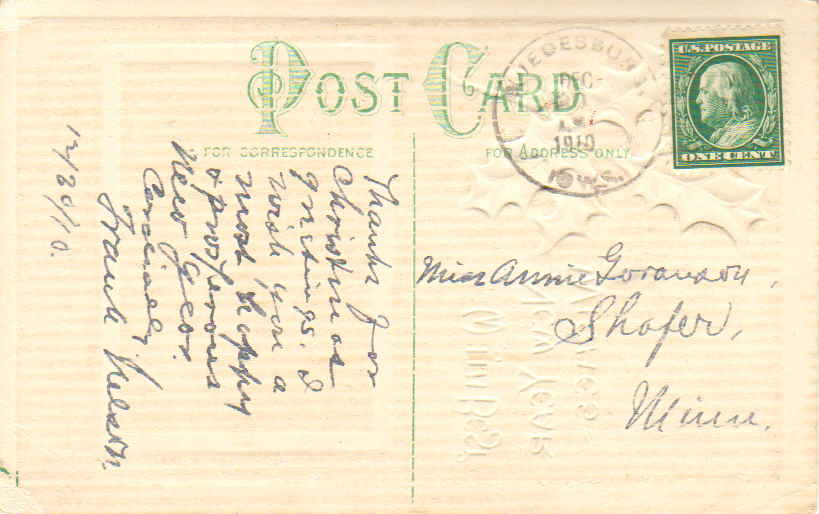 POST CARD
FOR CORRESPONDENCE
FOR ADDRESS ONLY
U.S. POSTAGE
ONE CENT
DEC
1910
IOWA
Thanks for
Christmas
greetings. I
wish you a
most happy
& prosperous
New Year.
Cordially
Frank Nelson.
12/30/10.
Miss Annie Goranson,
Shafer,
Minn.